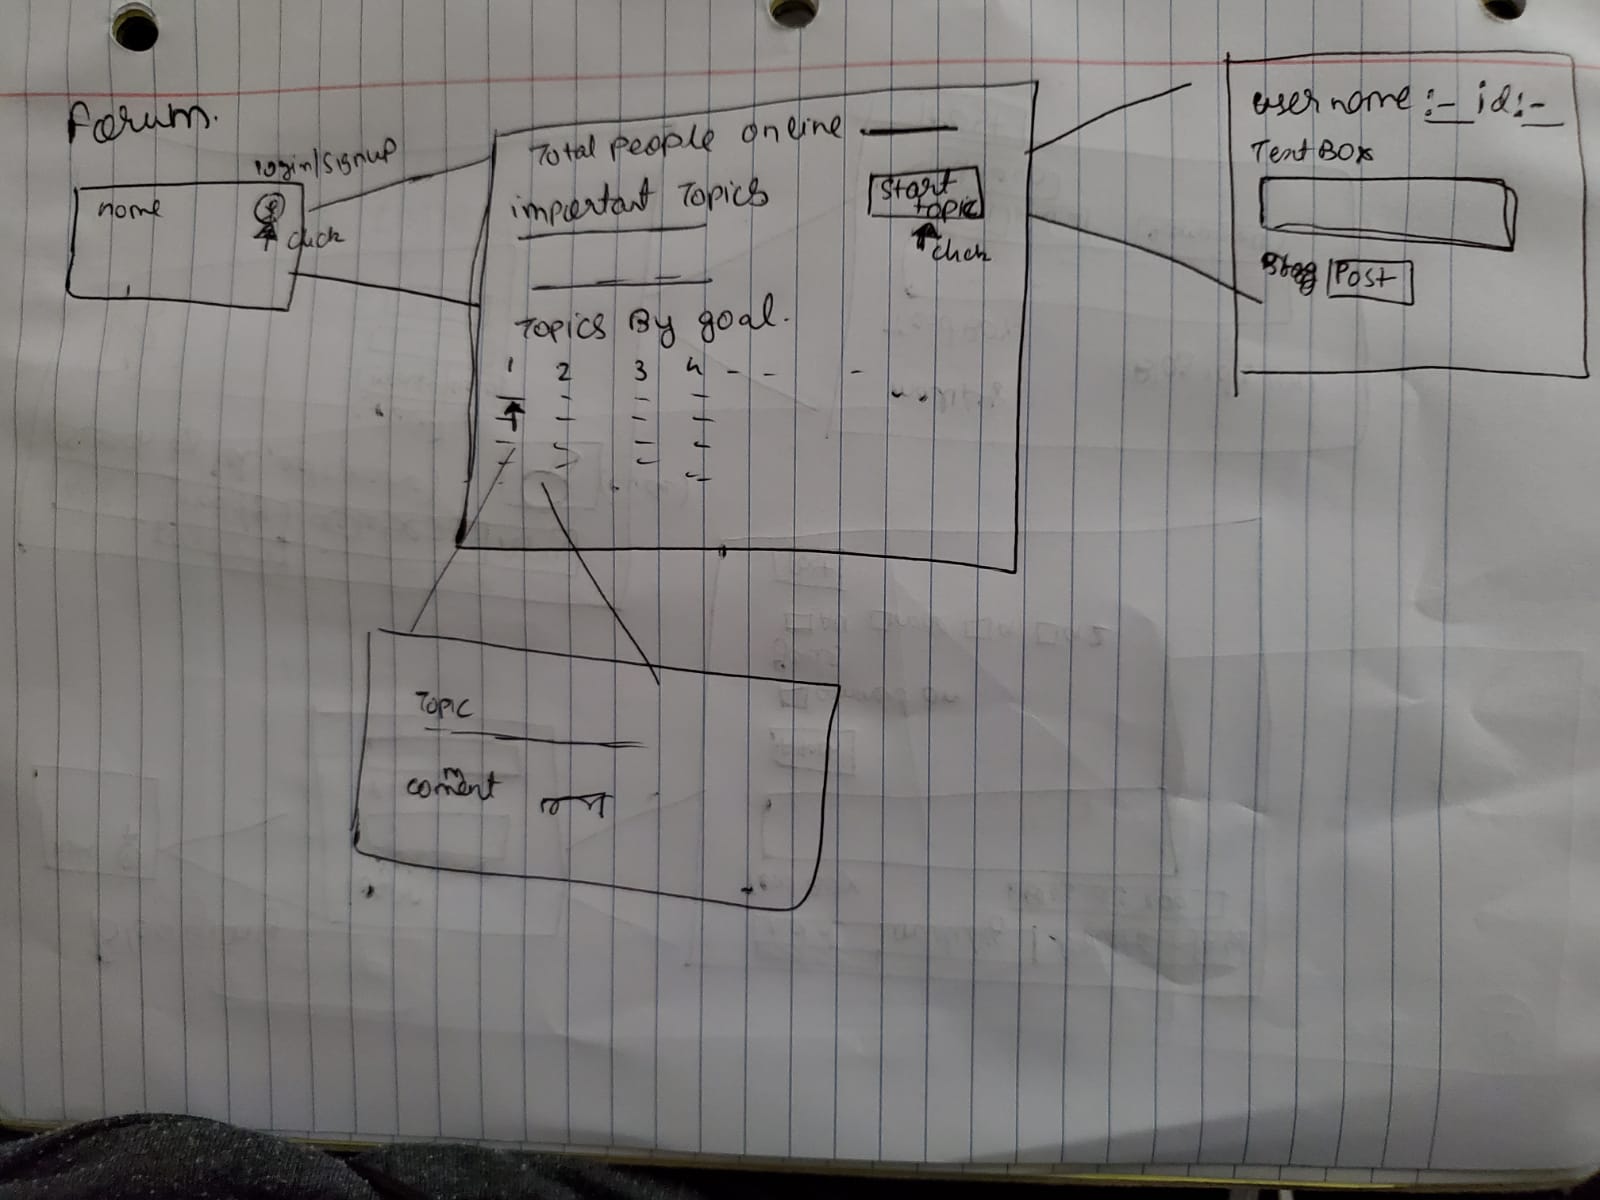 Forum.
login/signup
name
click
Total people online
important Topics
Start
topic
click
Topics By goal.
1 2 3 4 - - -
username :- id:-
Text Box
Post
Topic
comment